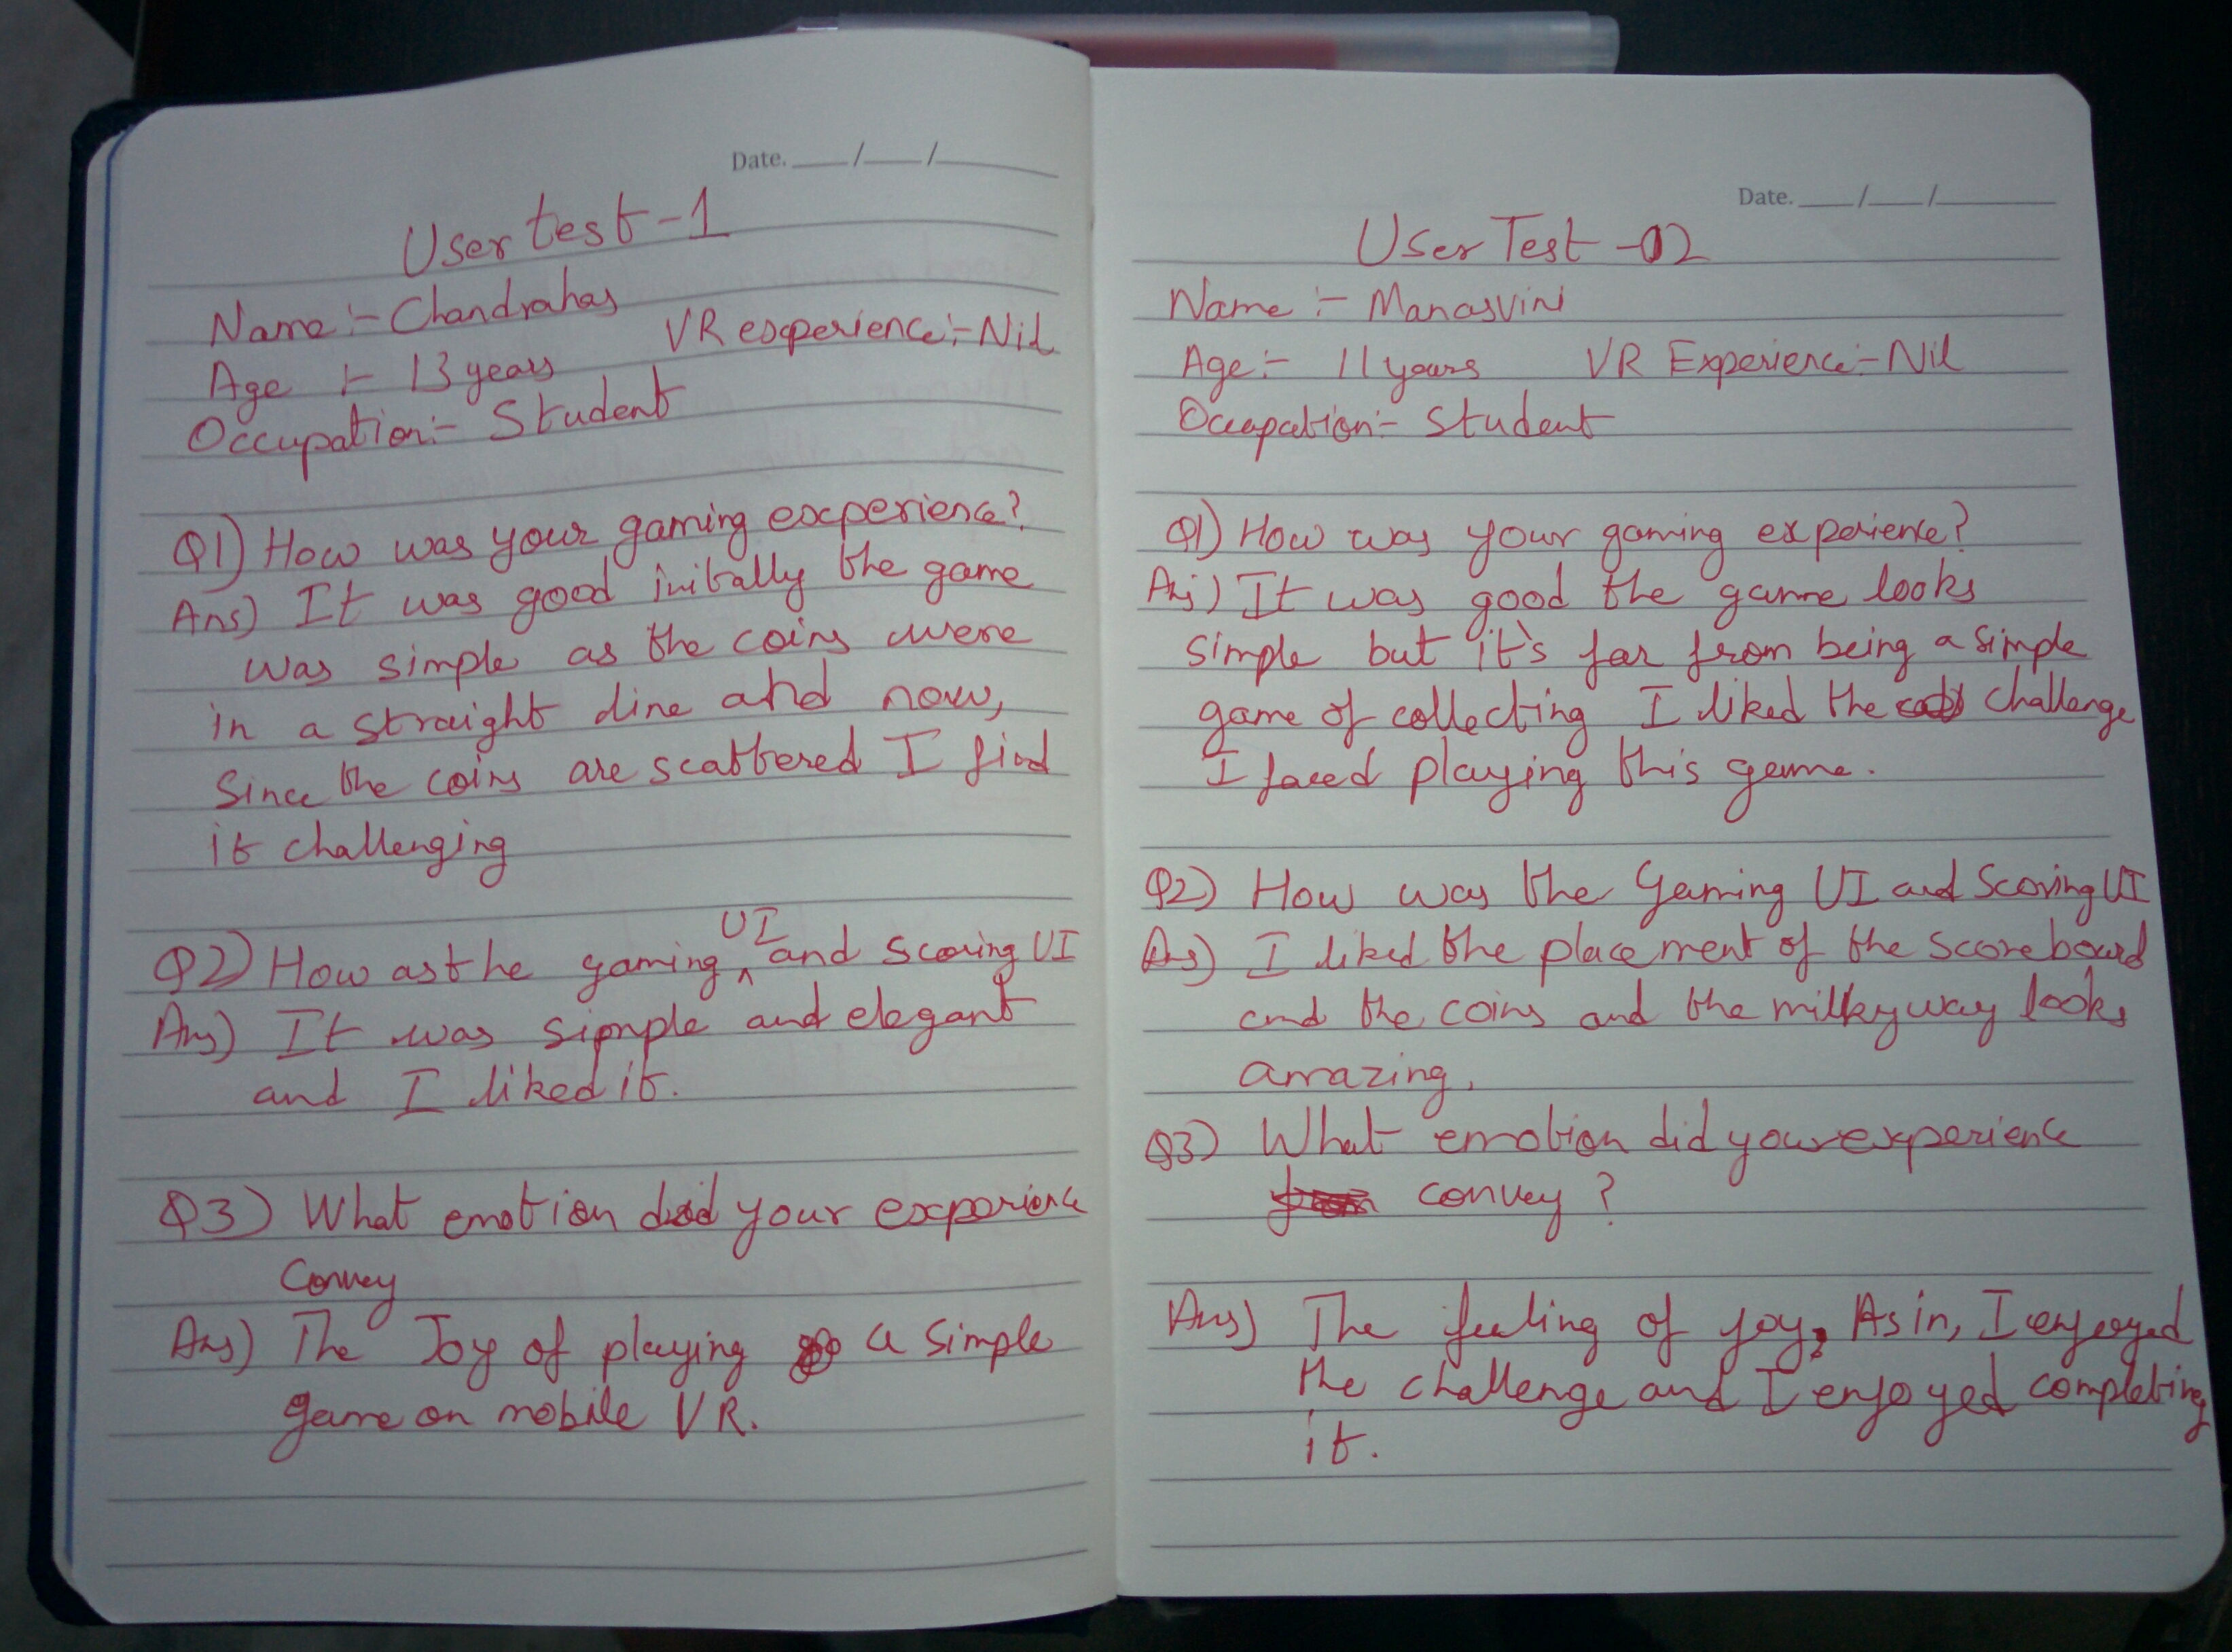 Date. ___/___/______
User test-1
Name :- Chandrahas
VR experience:- Nil
Age :- 13 years
Occupation:- Student
Q1) How was your gaming experience?
Ans) It was good initally the game
was simple as the coins were
in a straight line and now,
Since the coins are scattered I find
it challenging
Q2) How as the gaming UI and Scoring UI
Ans) It was simple and elegant
and I liked it.
Q3) What emotion did your experience
Convey
Ans) The Joy of playing a simple
game on mobile VR.
Date. ___/___/______
User Test -02
Name :- Manasvini
Age:- 11 years VR Experience:- Nil
Occupation:- Student
Q1) How was your gaming experience?
Ans) It was good the game looks
simple but it's far from being a simple
game of collecting I liked the challenge
I faced playing this game.
Q2) How was the Gaming UI and Scoring UI
Ans) I liked the placement of the scoreboard
and the coins and the milkyway looks
amazing.
Q3) What emotion did your experience
convey ?
Ans) The feeling of joy, As in, I enjoyed
the challenge and I enjoyed completing
it.